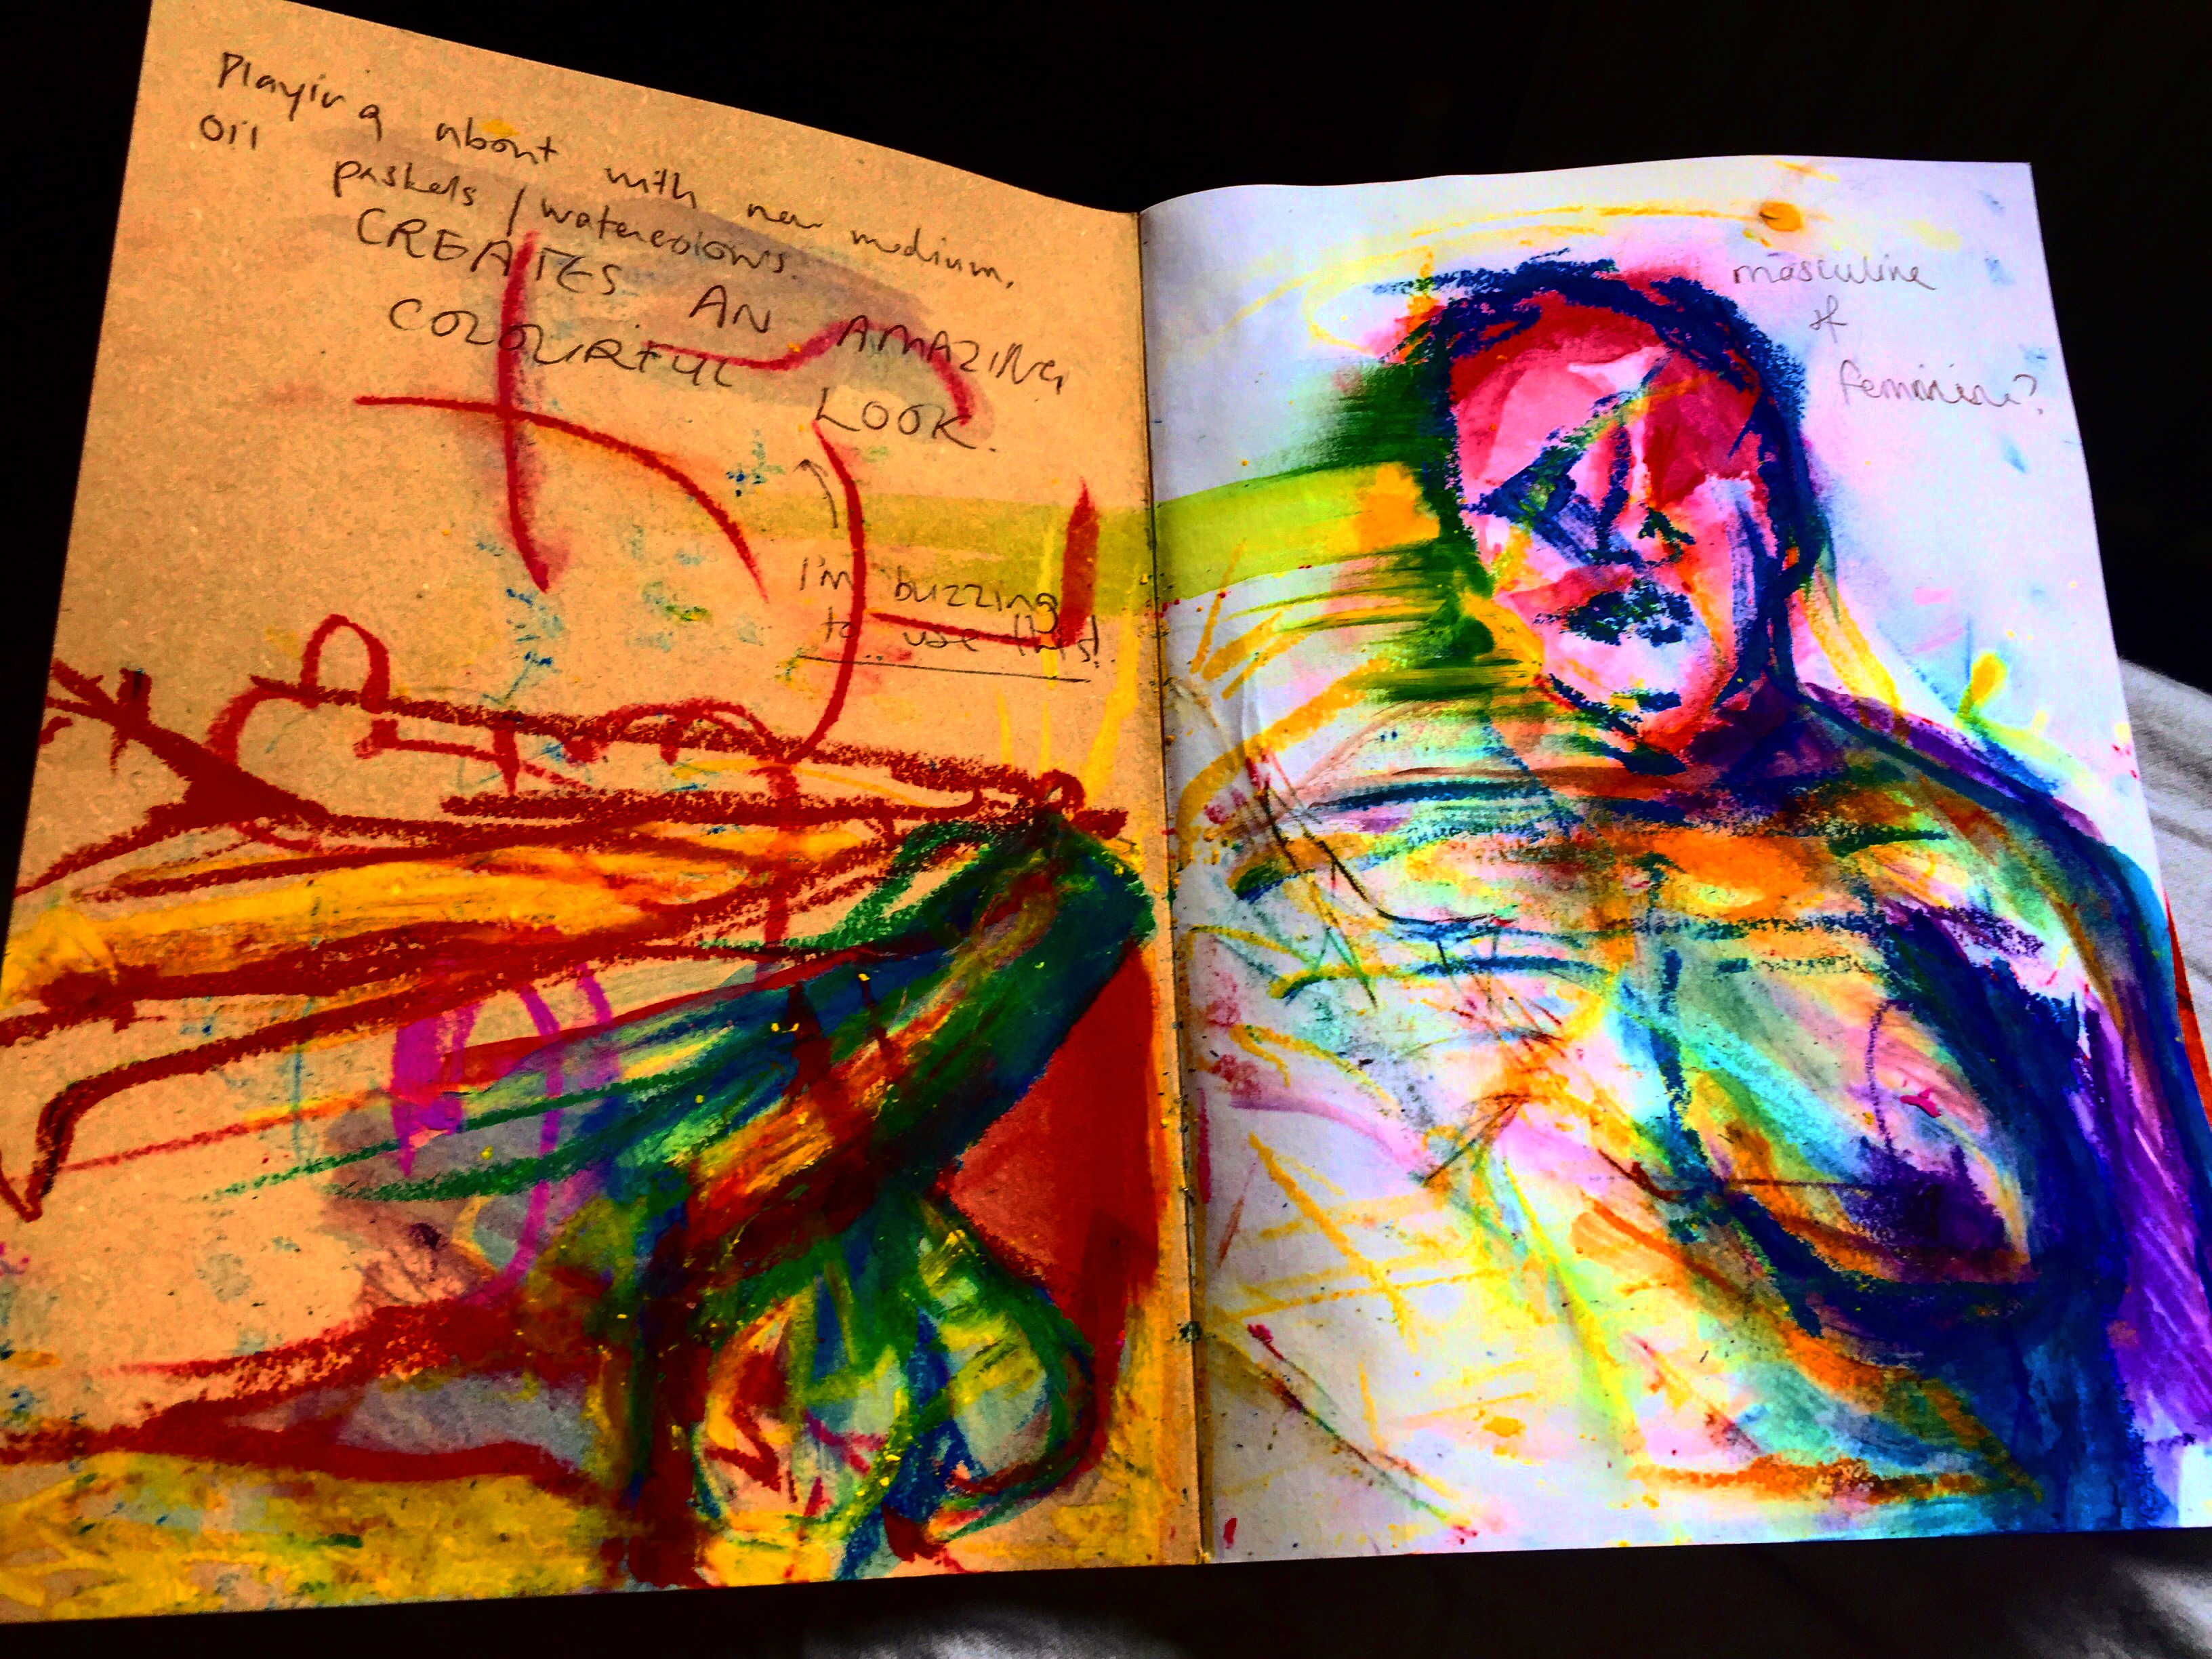 Playing about with new medium,
Oil paskels / watercolours.
CREATES AN AMAZING
COLOURFUL LOOK.
I'm buzzing
to use this!
masculine
feminine?